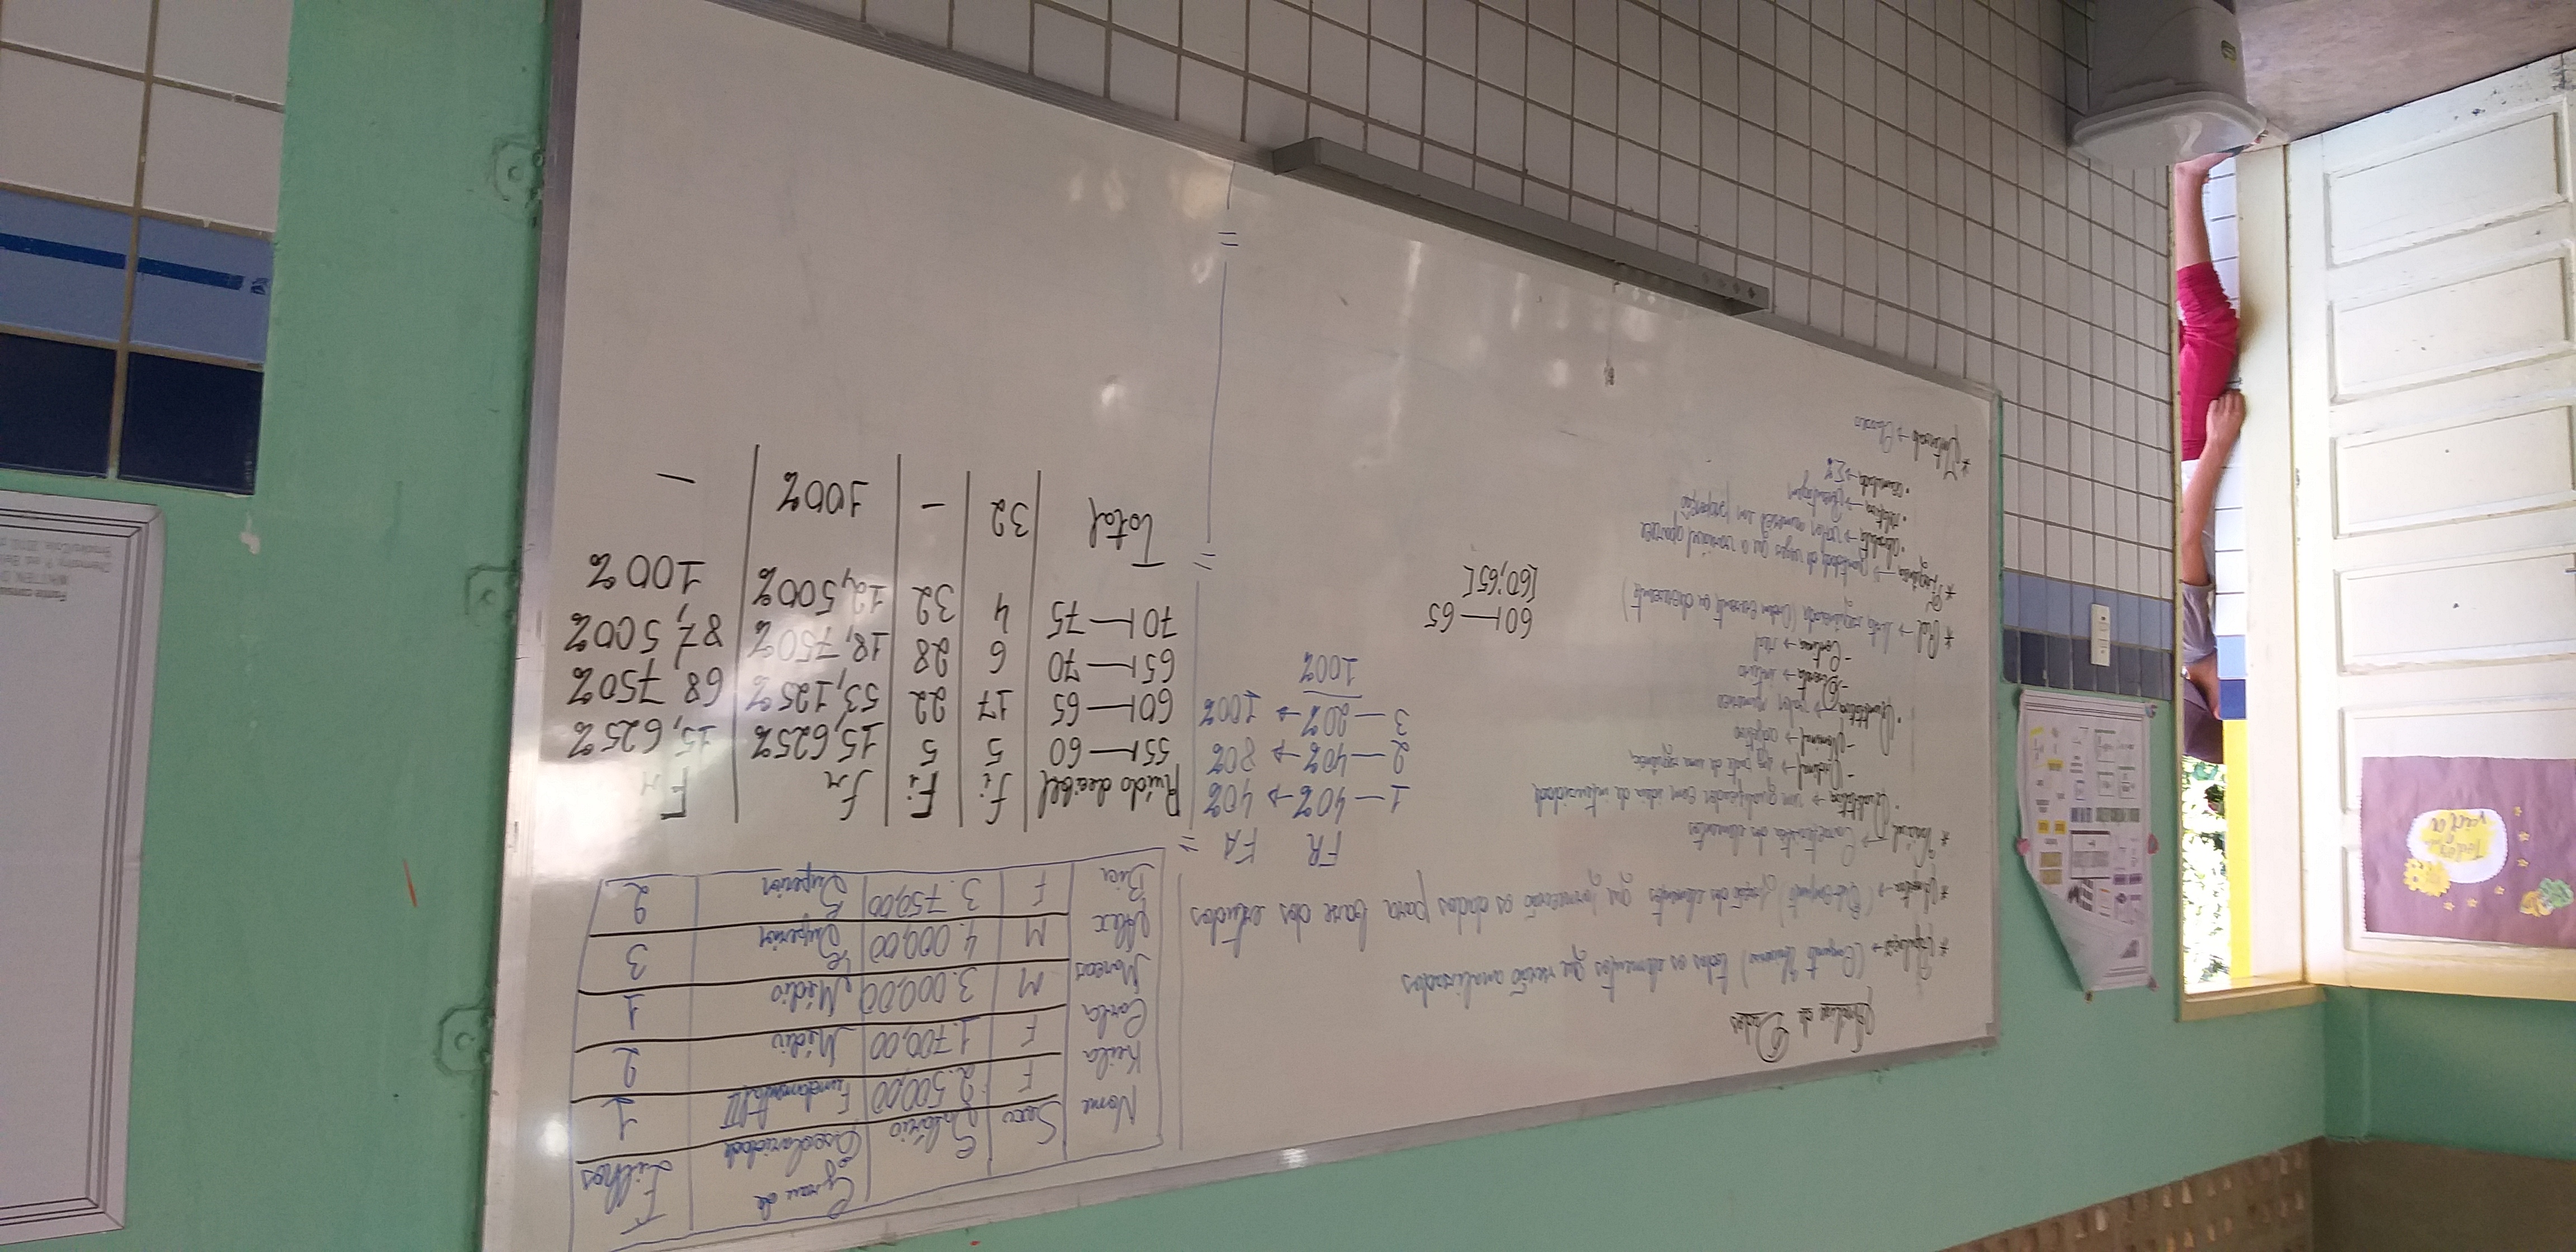 Todos
vida
Análise de Dados
* População → (Conjunto Universo) todos os elementos que serão analisados
* Amostra → (Sub-conjunto) fração dos elementos que fornecerão os dados para base dos estudos
* Variável → Característica dos elementos
· Qualitativa → um qualificador com ideia de intensidade
- Ordinal → faz parte de uma sequência
- Nominal → adjetivo
· Quantitativa → valor numérico
- Discreta → inteiro
- Contínua → real
* Rol → lista sequênciada (Ordem crescente ou decrescente)
* Frequência → quantidade de vezes que a variável aparece
· absoluta → valor numérico em
· relativa → Porcentagem
· acumulada → Σ%
* Intervalo → Classes
60⊢65
[60;65[
FR FA
1 — 40% → 40%
2 — 40% → 80%
3 — 20% → 100%
100%
Nome Sexo Salário Grau de Escolaridade Filhos
Keila F 2.500,00 Fundamental II 1
Carla F 1.700,00 Médio 2
Marcos M 3.000,00 Médio 1
Alex M 4.000,00 Superior 3
Bia F 3.750,00 Superior 2
Ruído decibel fi Fi fr Fr
55⊢60 5 5 15,625% 15,625%
60⊢65 17 22 53,125% 68,750%
65⊢70 6 28 18,750% 87,500%
70⊢75 4 32 12,500% 100%
Total 32 – 100% –